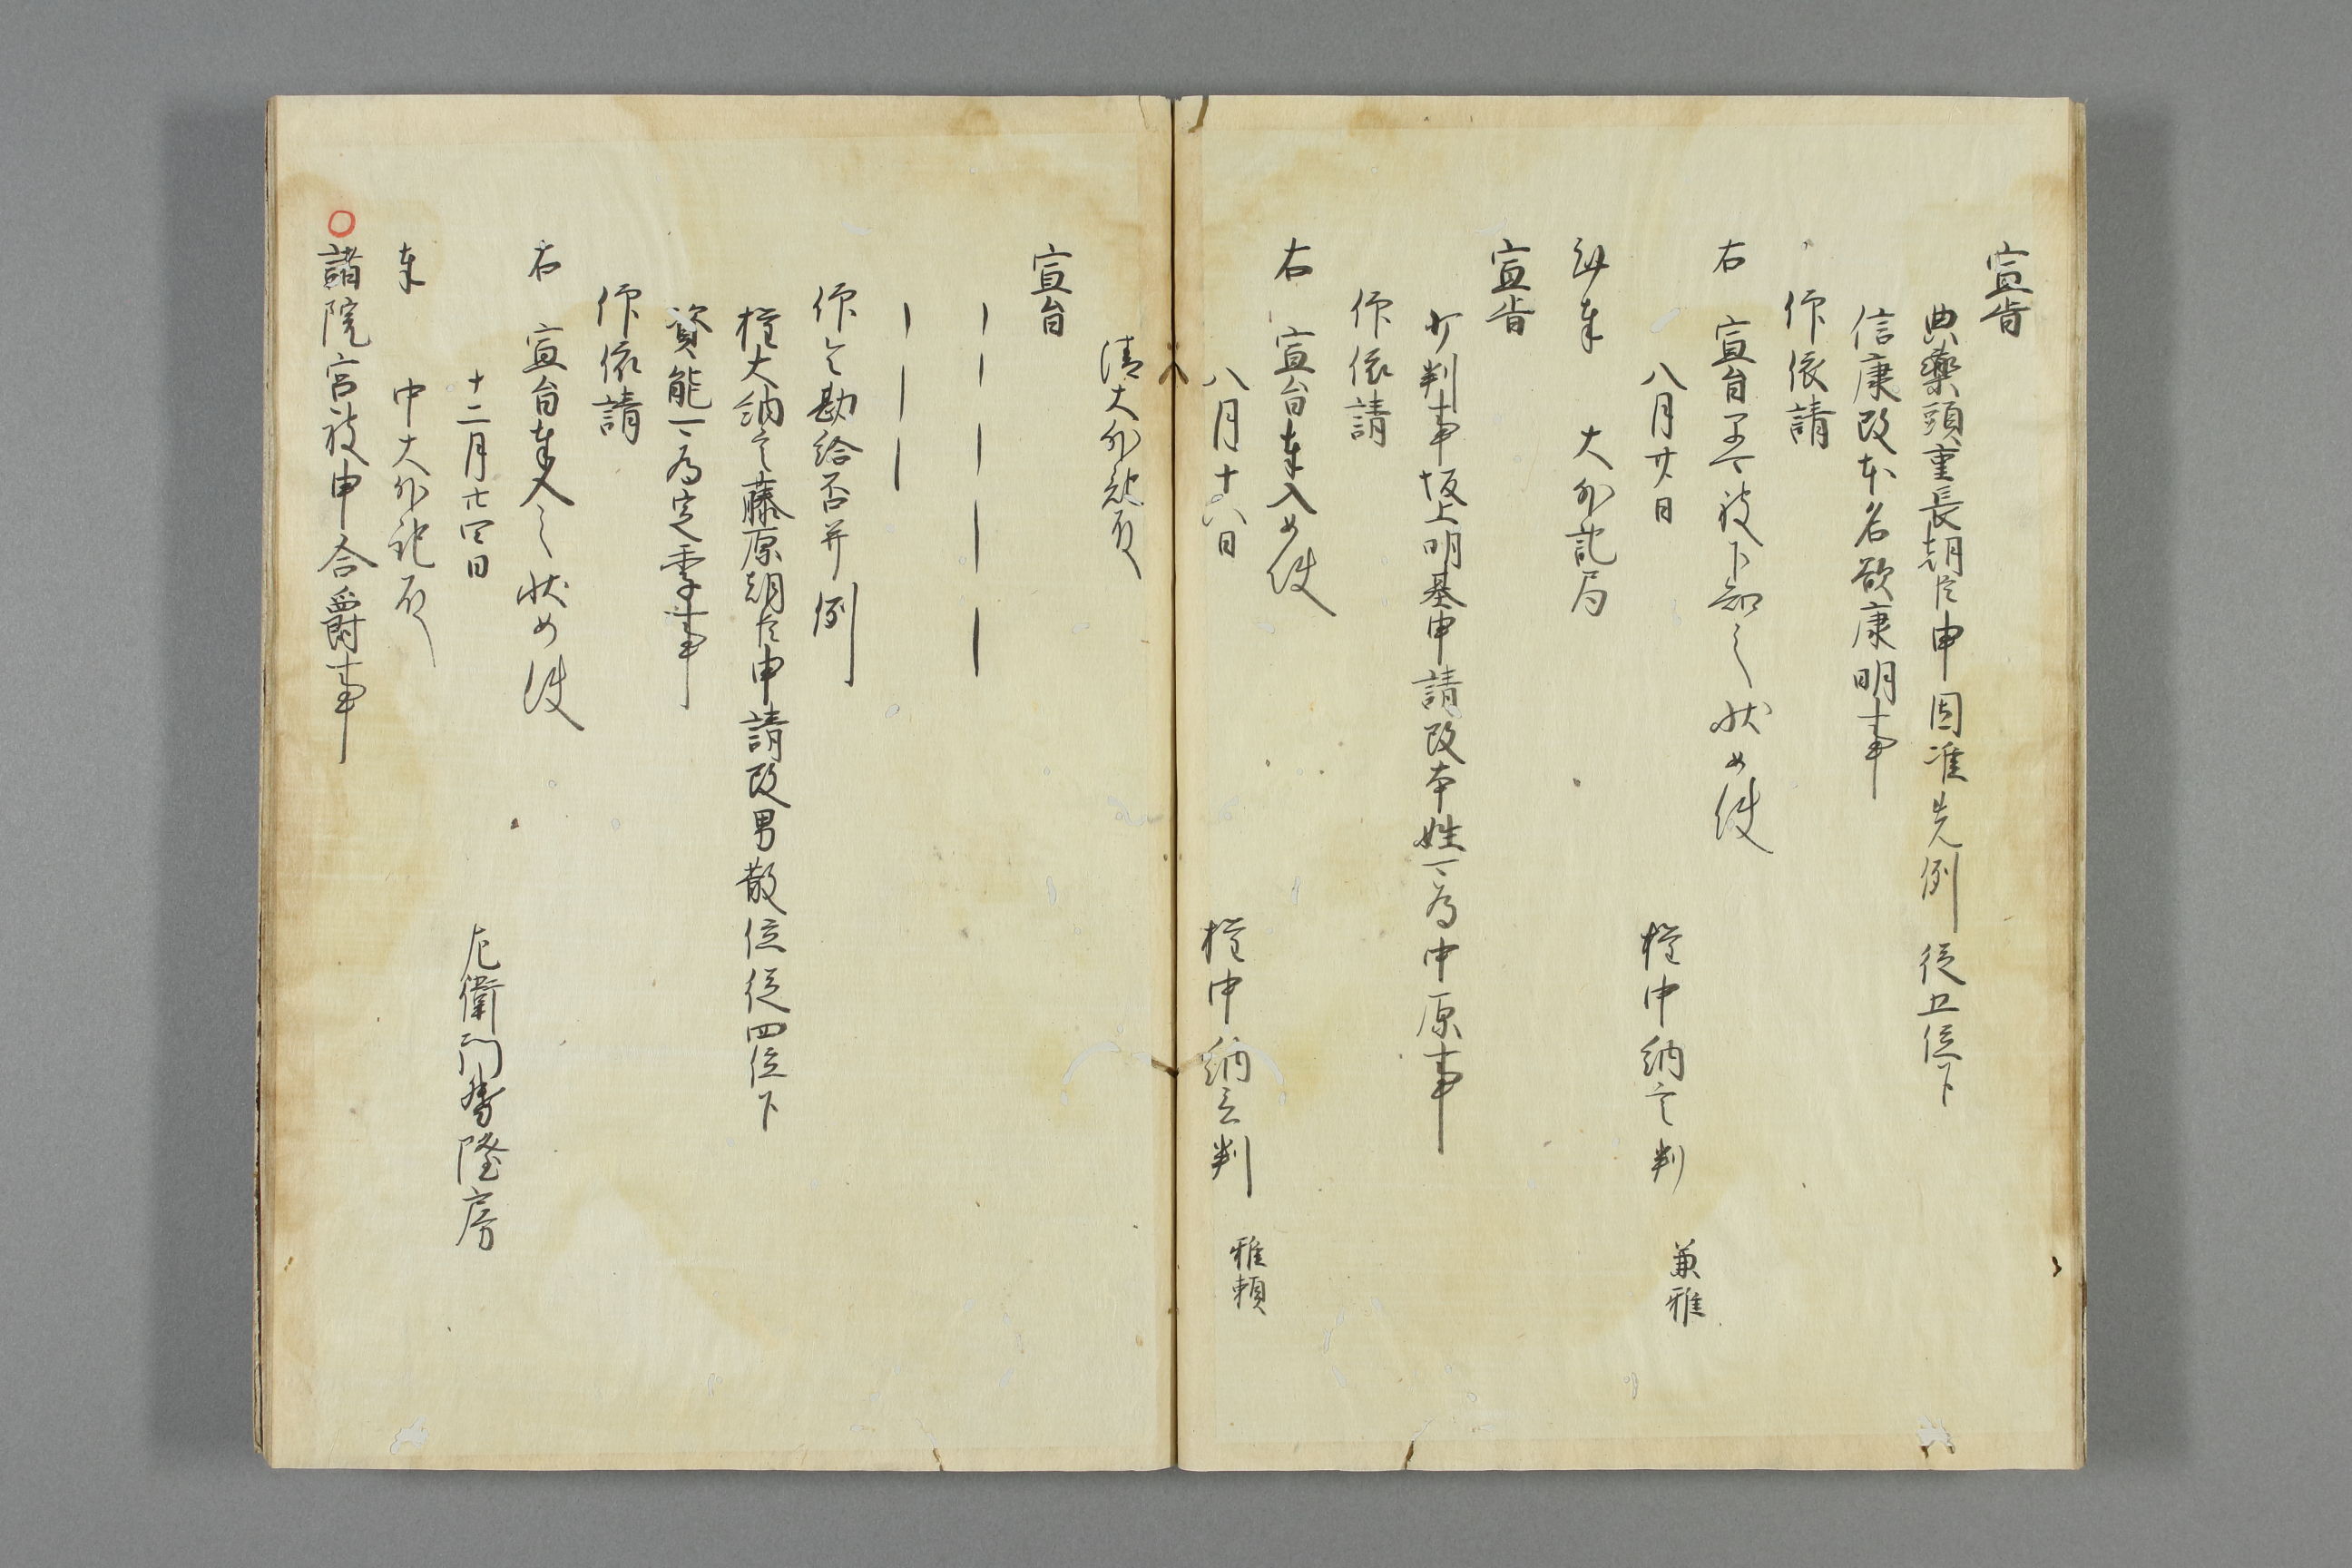 宣旨
典薬頭重長朝臣申因准先例従五位下
信康改本名欲康明事
仰依請
右宣旨早可被下知之状如件
八月廿日 権中納言判 兼雅
謹奉 大外記局
宣旨
少判事坂上明基申請改本姓可為中原事
仰依請
右宣旨奉入如件
八月十六日 権中納言判 雅頼
清大外記殿
宣旨
仰令勘給否并例
権大納言藤原朝臣申請改男散位従四位下
資能可為定季事
仰依請
右宣旨奉入之状如件
十二月廿四日 左衛門督隆房
奉 中大外記殿
○諸院宮被申合爵事